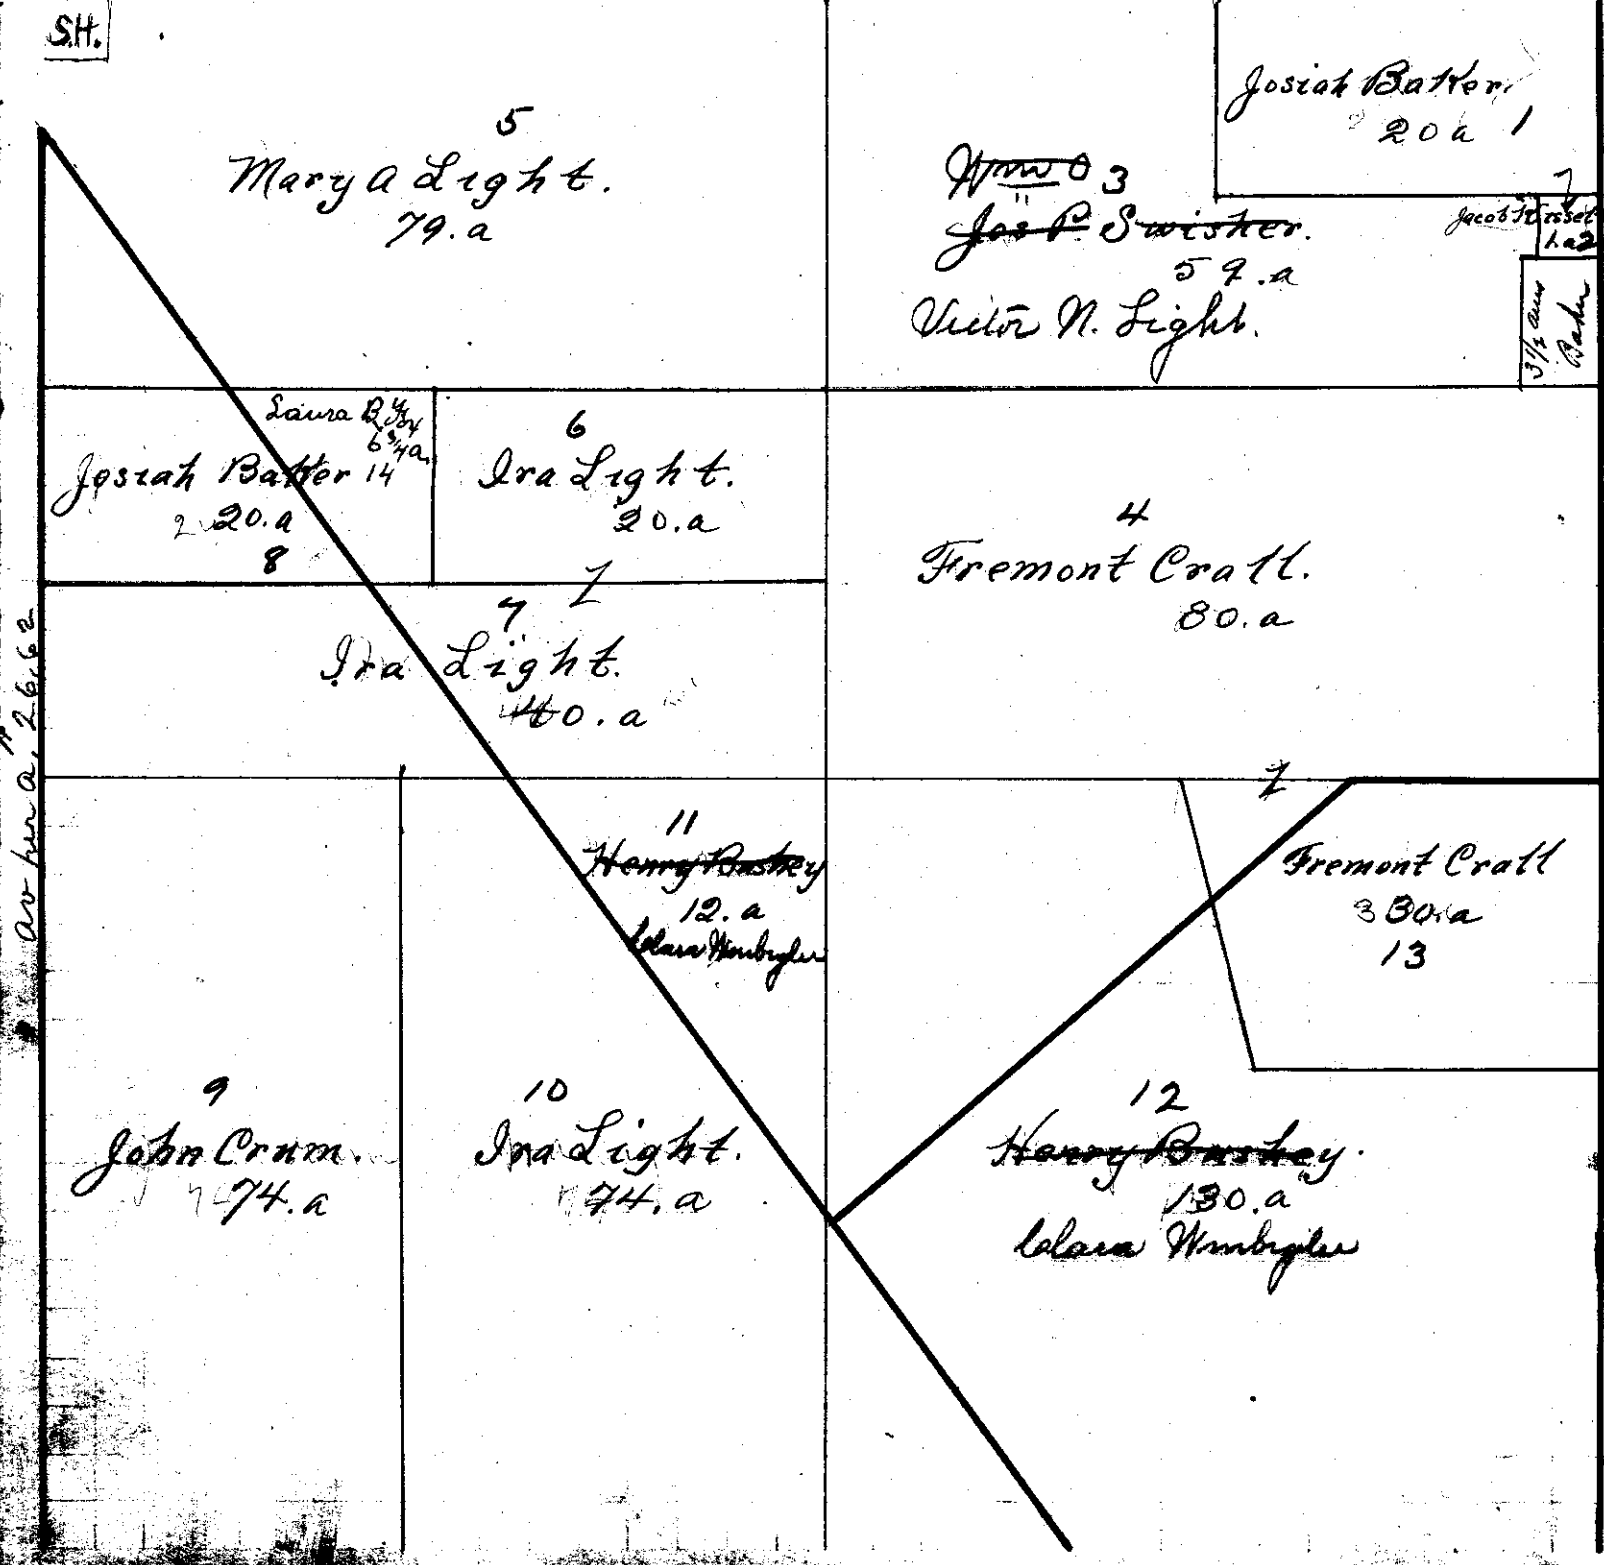 S.H.
5
Mary A Light.
79.a
Josiah Baker.
20a 1
Wm O 3
"
Jos P. Swisher.
59.a
Victor N. Light.
Jacob
1.a 2
3 1/2
Baker
Laura B
6 3/4 a.
Josiah Baker 14
20.a
8
6
Ira Light.
20.a
4
Fremont Crall.
80.a
7
Ira Light.
40.a
av per a, 26.62
11
Henry Bushey
12.a
Clara Wimbigler
Fremont Crall
30.a
13
9
John Crum.
74.a
10
Ira Light.
74.a
12
Henry Bushey.
130.a
Clara Wimbigler